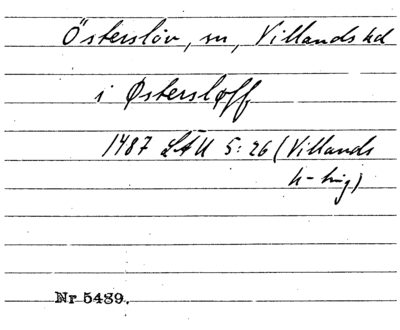 Österslöv, sn, Villands hd
i Østersløff
1487 LÄU 5:26 (Villands
h-ting)
Nr 5489.